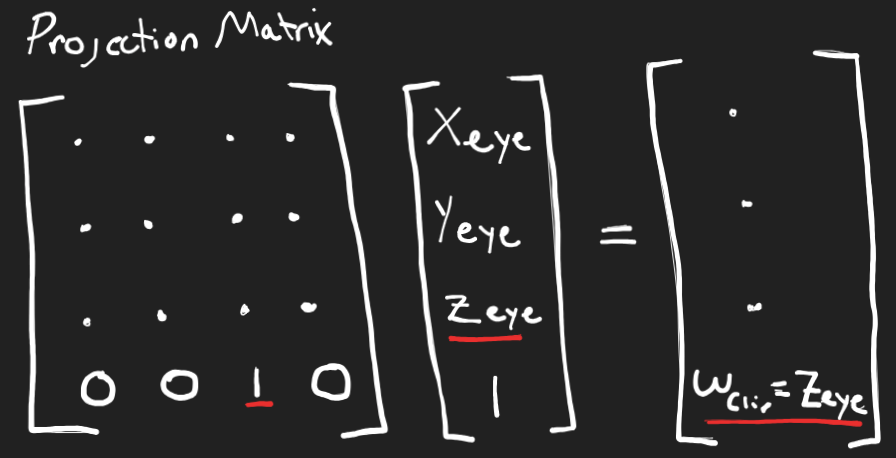 Projection Matrix
. . . . Xeye .
. . . . Yeye = .
. . . . Zeye .
0 0 1 0 1 Wclip=Zeye